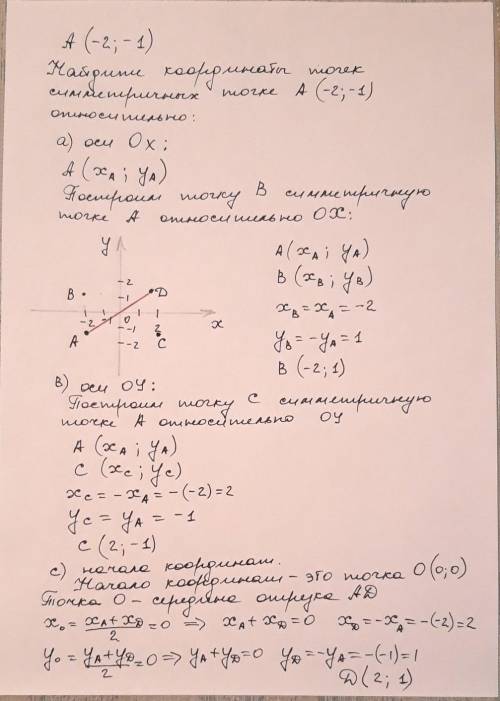 А (-2; -1)
Найдите координаты точек
симметричных точке А (-2; -1)
относительно:
а) оси Ох;
А (xA; yA)
Построим точку В симметричную
точке А относительно ОХ:
y
2
1
B
D
-2
-1
0
2
x
-1
-2
A
C
A (xA; yA)
B (xB; yB)
xB = xA = -2
yB = -yA = 1
B (-2; 1)
в) оси ОУ:
Построим точку С симметричную
точке А относительно ОУ
А (xA; yA)
С (xC; yC)
xC = -xA = -(-2) = 2
yC = yA = -1
C (2; -1)
с) начала координат.
Начало координат - это точка О(0; 0)
Точка О - середина отрезка АD
x₀ = (xA + xD)/2 = 0 => xA + xD = 0 xD = -xA = -(-2) = 2
y₀ = (yA + yD)/2 = 0 => yA + yD = 0 yD = -yA = -(-1) = 1
D (2; 1)